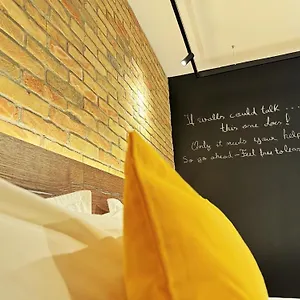 If walls could talk ...
this one does!
Only it needs your help
So go ahead - Feel free to lear